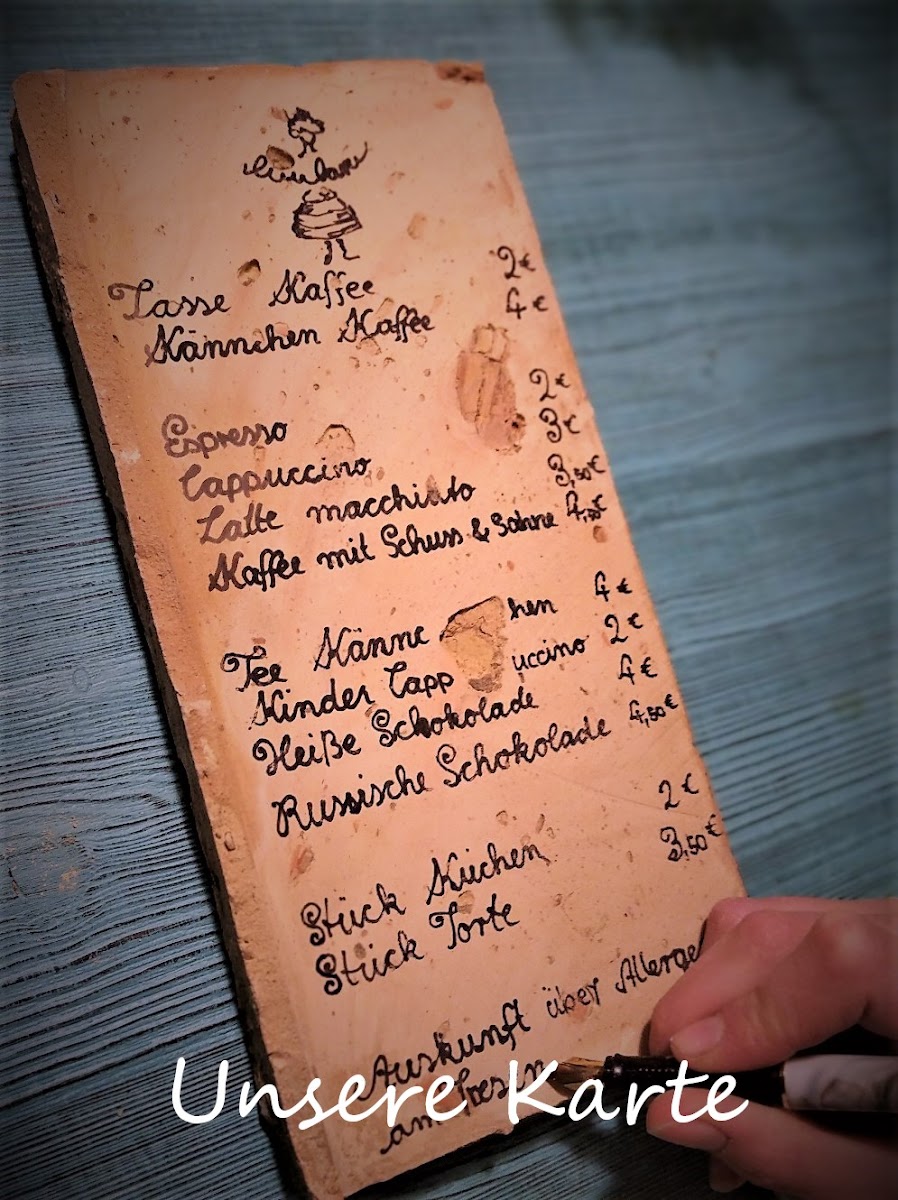 Tasse Kaffee 2€
Kännchen Kaffee 4€
Espresso 2€
Cappuccino 3€
Latte macchiato 3,50€
Kaffee mit Schuss & Sahne 4,50€
Tee Kännchen 4€
Kinder Cappuccino 2€
Heiße Schokolade 4€
Russische Schokolade 4,50€
Stück Kuchen 2€
Stück Torte 3,50€
Auskunft über Allerge
am Tresen
Unsere Karte